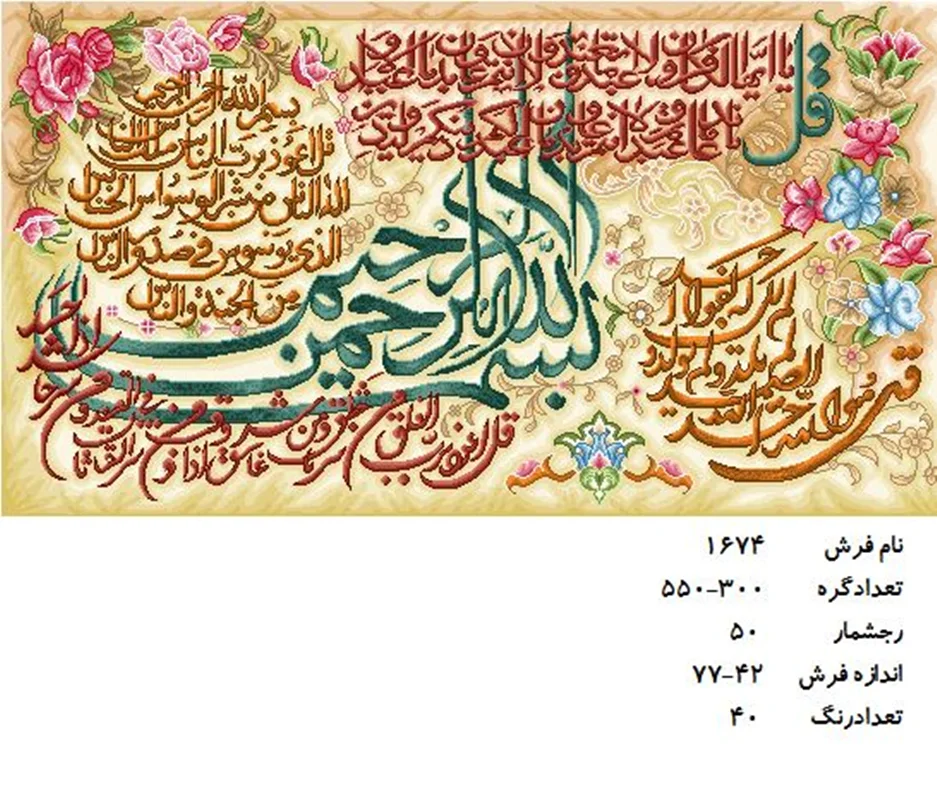 قل
یا ایها الکافرون لا اعبد ما تعبدون ولا انتم عابدون ما اعبد ولا
انا عابد ما عبدتم ولا انتم عابدون ما اعبد لکم دینکم ولی دین
بسم الله الرحمن الرحیم
قل اعوذ برب الناس ملک الناس
اله الناس من شر الوسواس الخناس
الذی یوسوس فی صدور الناس
من الجنة والناس
بسم الله الرحمن الرحیم
قل هو الله احد الله الصمد لم یلد ولم یولد ولم یکن له کفوا احد
قل اعوذ برب الفلق من شر ما خلق ومن شر غاسق اذا وقب ومن شر النفاثات فی العقد ومن شر حاسد اذا حسد
نام فرش ۱۶۷۴
تعدادگره ۵۵۰-۳۰۰
رجشمار ۵۰
اندازه فرش ۷۷-۴۲
تعدادرنگ ۴۰